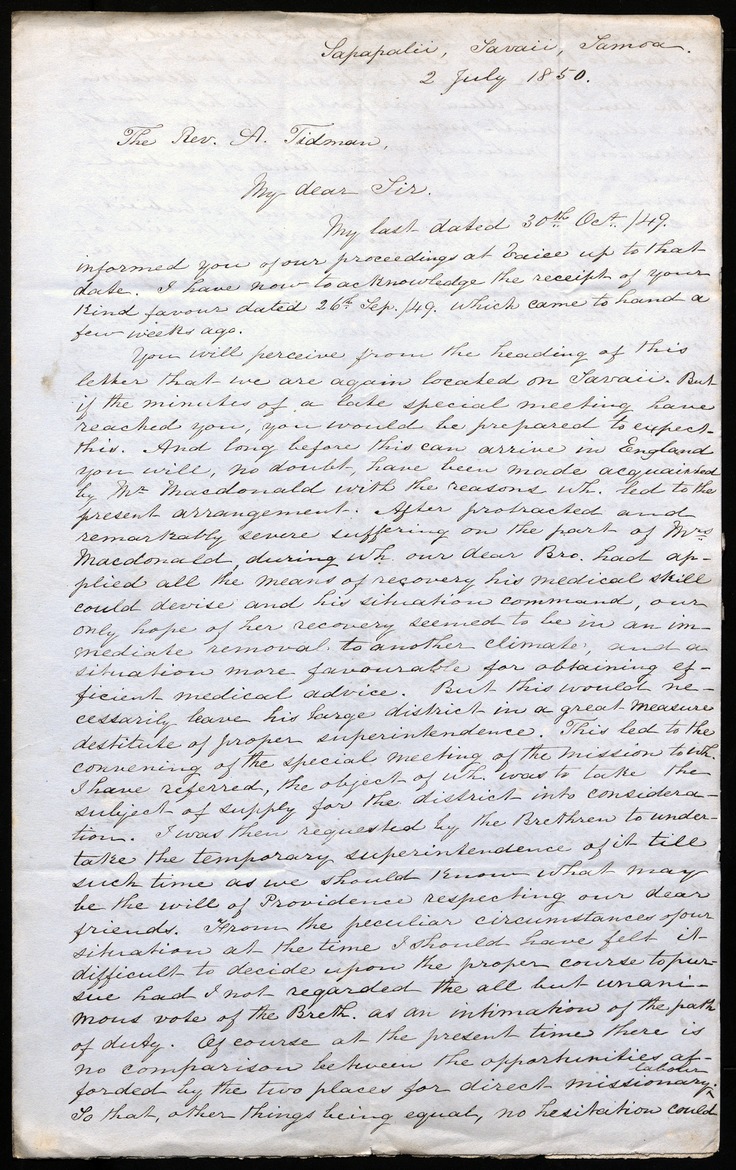 Sapapalii, Savaii, Samoa.
2 July 1850.
The Rev. A. Tidman,
My dear Sir.
My last dated 30th Oct. /49.
informed you of our proceedings at up to that
date. I have now to acknowledge the receipt of your
kind favour dated 26th Sep. /49. which came to hand a
few weeks ago.
You will perceive from the heading of this
letter that we are again located on Savaii. But
if the minutes of a late special meeting have
reached you, you would be prepared to expect
this. And long before this can arrive in England
you will, no doubt, have been made acquainted
by Mr Macdonald with the reasons wh. led to the
present arrangement. After protracted and
remarkably severe suffering on the part of Mrs
Macdonald, during wh. our dear Bro. had ap-
plied all the means of recovery his medical skill
could devise and his situation command, our
only hope of her recovery seemed to be in an im-
mediate removal to another climate, and a
situation more favourable for obtaining ef-
ficient medical advice. But this would ne-
cessarily leave his large district in a great measure
destitute of proper superintendence. This led to the
convening of the special meeting of the mission to wh.
I have referred, the object of wh. was to take the
subject of supply for the district into considera-
tion. I was then requested by the Brethren to under-
take the temporary superintendence of it till
such time as we should know what may
be the will of Providence respecting our dear
friends. From the peculiar circumstances of our
situation at the time I should have felt it
difficult to decide upon the proper course to pur-
sue had I not regarded the all but unani-
mous vote of the Breth. as an intimation of the path
of duty. Of course at the present time there is
no comparison between the opportunities af-
forded by the two places for direct missionary ^labour.
So that, other things being equal, no hesitation could